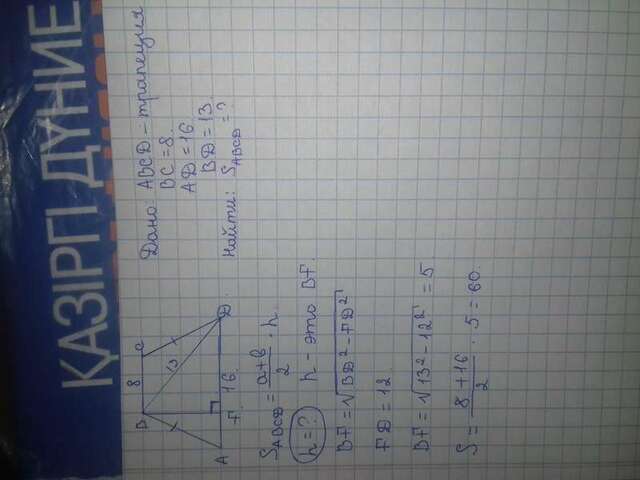 ҚАЗІРГІ ДҮНИЕ
B 8 C
13
A F 16 D
Дано: ABCD - трапеция
BC = 8.
AD = 16.
BD = 13.
Найти: S_ABCD = ?
S_ABCD = (a+b)/2 · h.
h = ? h - это BF.
BF = √(BD² - FD²)
FD = 12.
BF = √(13² - 12²) = 5
S = (8 + 16)/2 · 5 = 60.